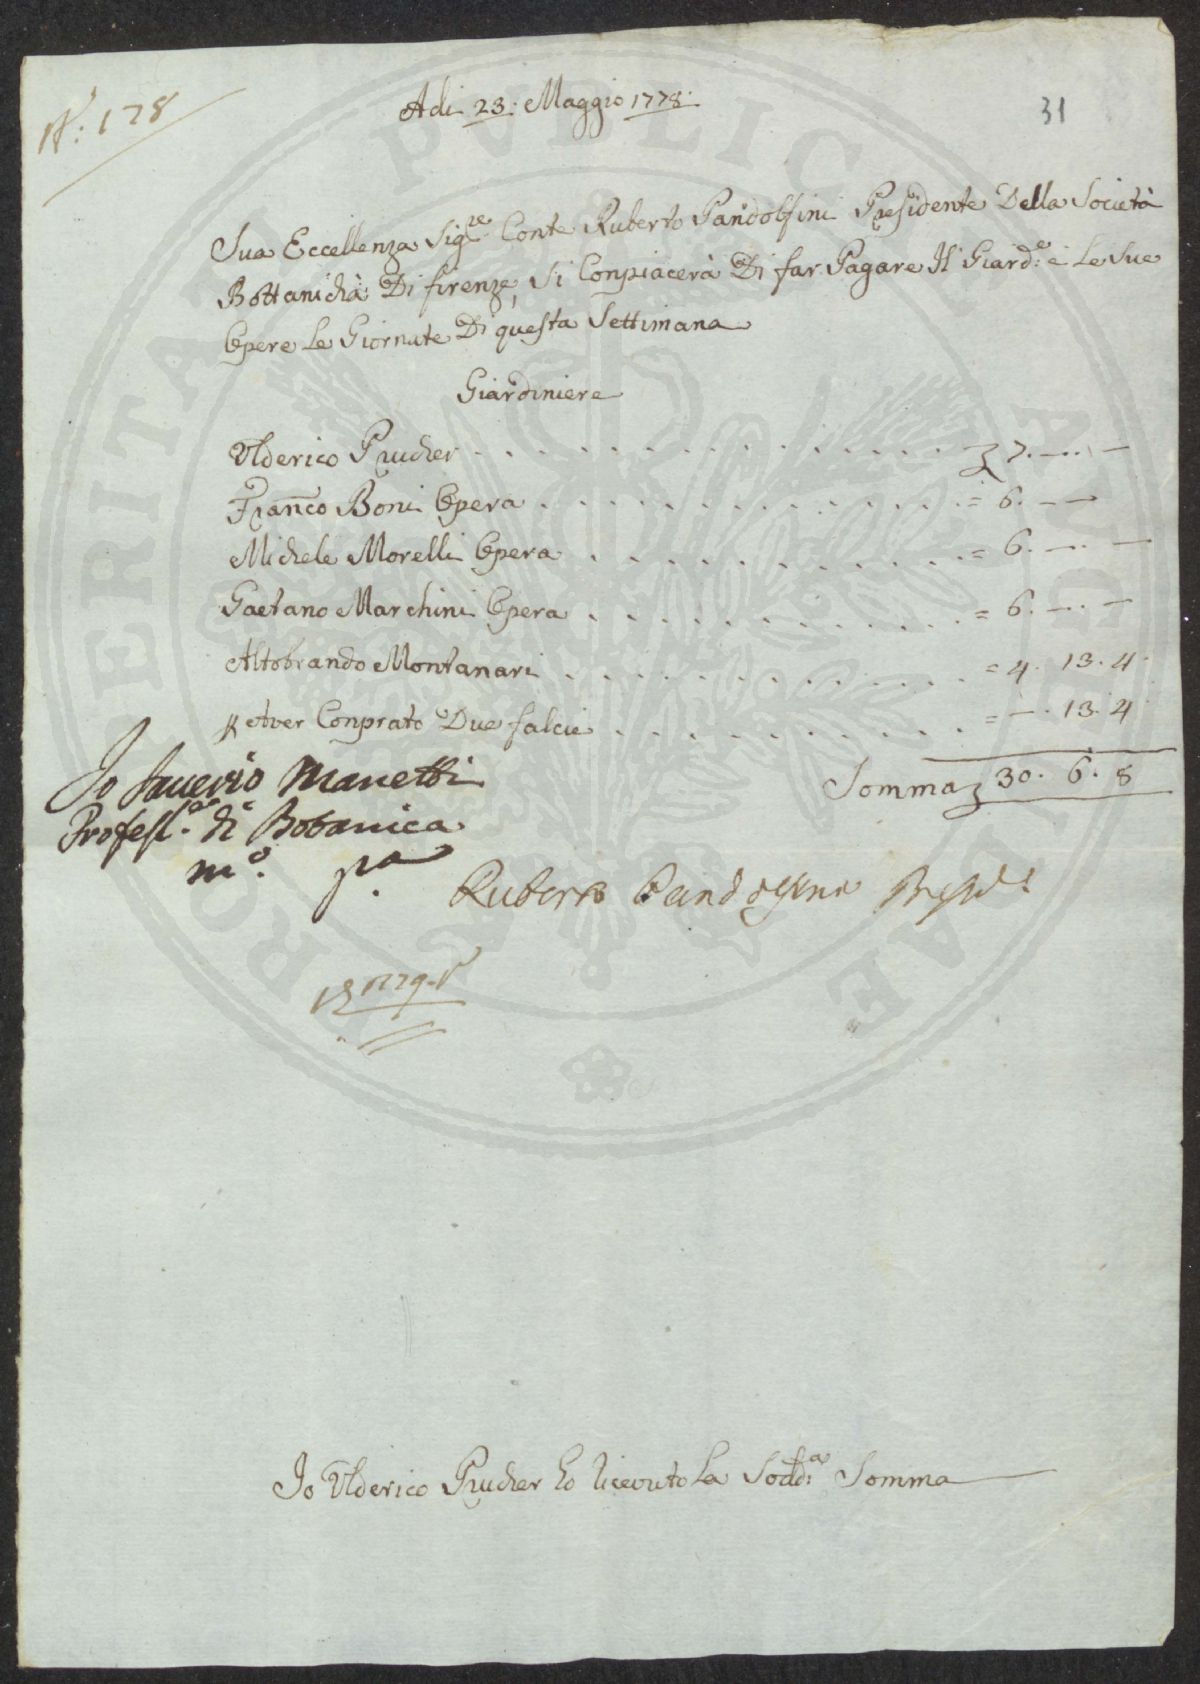 N.° 178
Adi 23: Maggio 1778:
31
Sua Eccellenza Sig.re Conte Ruberto Pandolfini Presidente Della Società
Bottanicha Di firenze, Si Conpiacerà Di far Pagare Il Giard.e e Le Sue
Opere Le Giornate Di questa Settimana
Giardiniere
Ulderico Prucher . . . . . . . . . . . . £ 7. — . —
Fran̄co Boni Opera . . . . . . . . . . . = 6. — —
Michele Morelli Opera . . . . . . . . . . = 6. — . —
Gaetano Marchini Opera . . . . . . . . . . = 6. — . —
Altobrando Montanari . . . . . . . . . . . = 4. 13. 4.
p etver Conprato Due falcie . . . . . . . . . = — . 13. 4
Somma £ 30. 6. 8
Io Saverio Manetti
Profess.re di Botanica
m.o p.a
Ruberto Pandolfini Presid.e
Io Ulderico Prucher ho ricevuto La Sodd.a Somma
PROSPERITATI PVBLICAE AVGENDAE